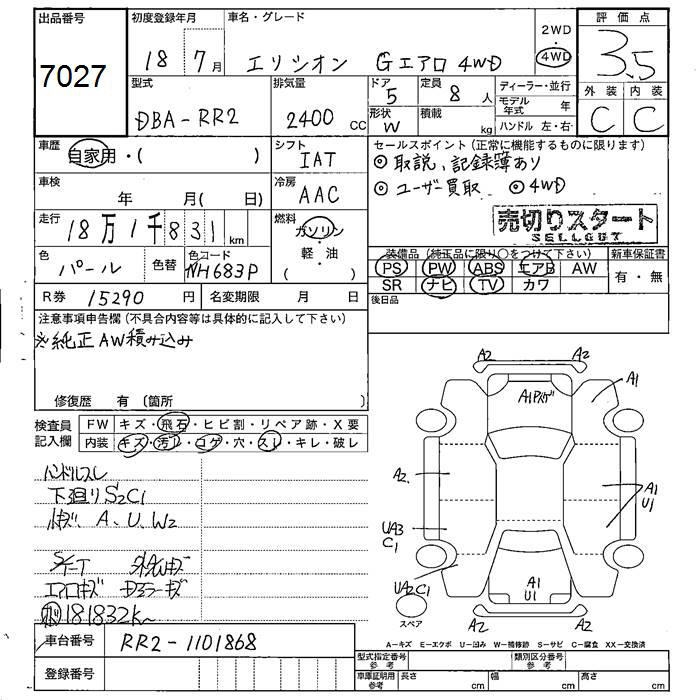 出品番号
7027
初度登録年月
18年 7月
車名・グレード
エリシオン Gエアロ 4WD
2WD
・
4WD
評価点
3.5
外装 内装
C C
型式
DBA-RR2
排気量
2400 cc
ドア 5
形状 W
定員 8 人
積載 kg
ディーラー・並行
モデル年式 年
ハンドル 左・右
車歴 自家用・( )
シフト IAT
冷房 AAC
車検 年 月( 日)
走行 18万1千831 km
燃料 ガソリン
軽・油
( )
色 パール
色替
色コード NH683P
R券 15290 円
名変期限 月 日
セールスポイント(正常に機能するものに限ります)
◎取説、記録簿あり
◎ユーザー買取 ◎4WD
売切りスタート
SELLOUT
装備品(純正品に限り○をつけて下さい)
PS PW ABS エアB AW
SR ナビ TV カワ
新車保証書
有・無
後日品
注意事項申告欄(不具合内容等は具体的に記入して下さい)
※純正AW積み込み
修復歴 有(箇所 )
検査員
記入欄
FW キズ・飛石・ヒビ割・リペア跡・X要
内装 キズ・汚レ・コゲ・穴・スレ・キレ・破レ
ハンドルスレ
下廻りS2C1
A、U、W2
エアロキズ
181832K〜
車台番号 RR2-1101868
登録番号
A2 A2
A1
A1
A2
A1
U1
UA3
C1
UA2C1
A1
U1
A2 A2
スペア
A－キズ E－エクボ U－凹み W－補修跡 S－サビ C－腐食 XX－交換済
型式指定番号
参考
類別区分番号
参考
車庫証明用
参考
長さ cm 幅 cm 高さ cm